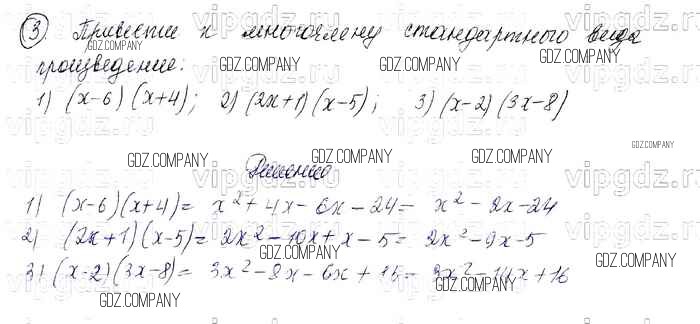 ③ Привести к многочлену стандартного вида
произведение:
1) (x-6)(x+4); 2) (2x+1)(x-5); 3) (x-2)(3x-8)
Решение
1) (x-6)(x+4)= x²+4x-6x-24= x²-2x-24
2) (2x+1)(x-5)= 2x²-10x+x-5= 2x²-9x-5
3) (x-2)(3x-8)= 3x²-8x-6x+15= 3x²-14x+16